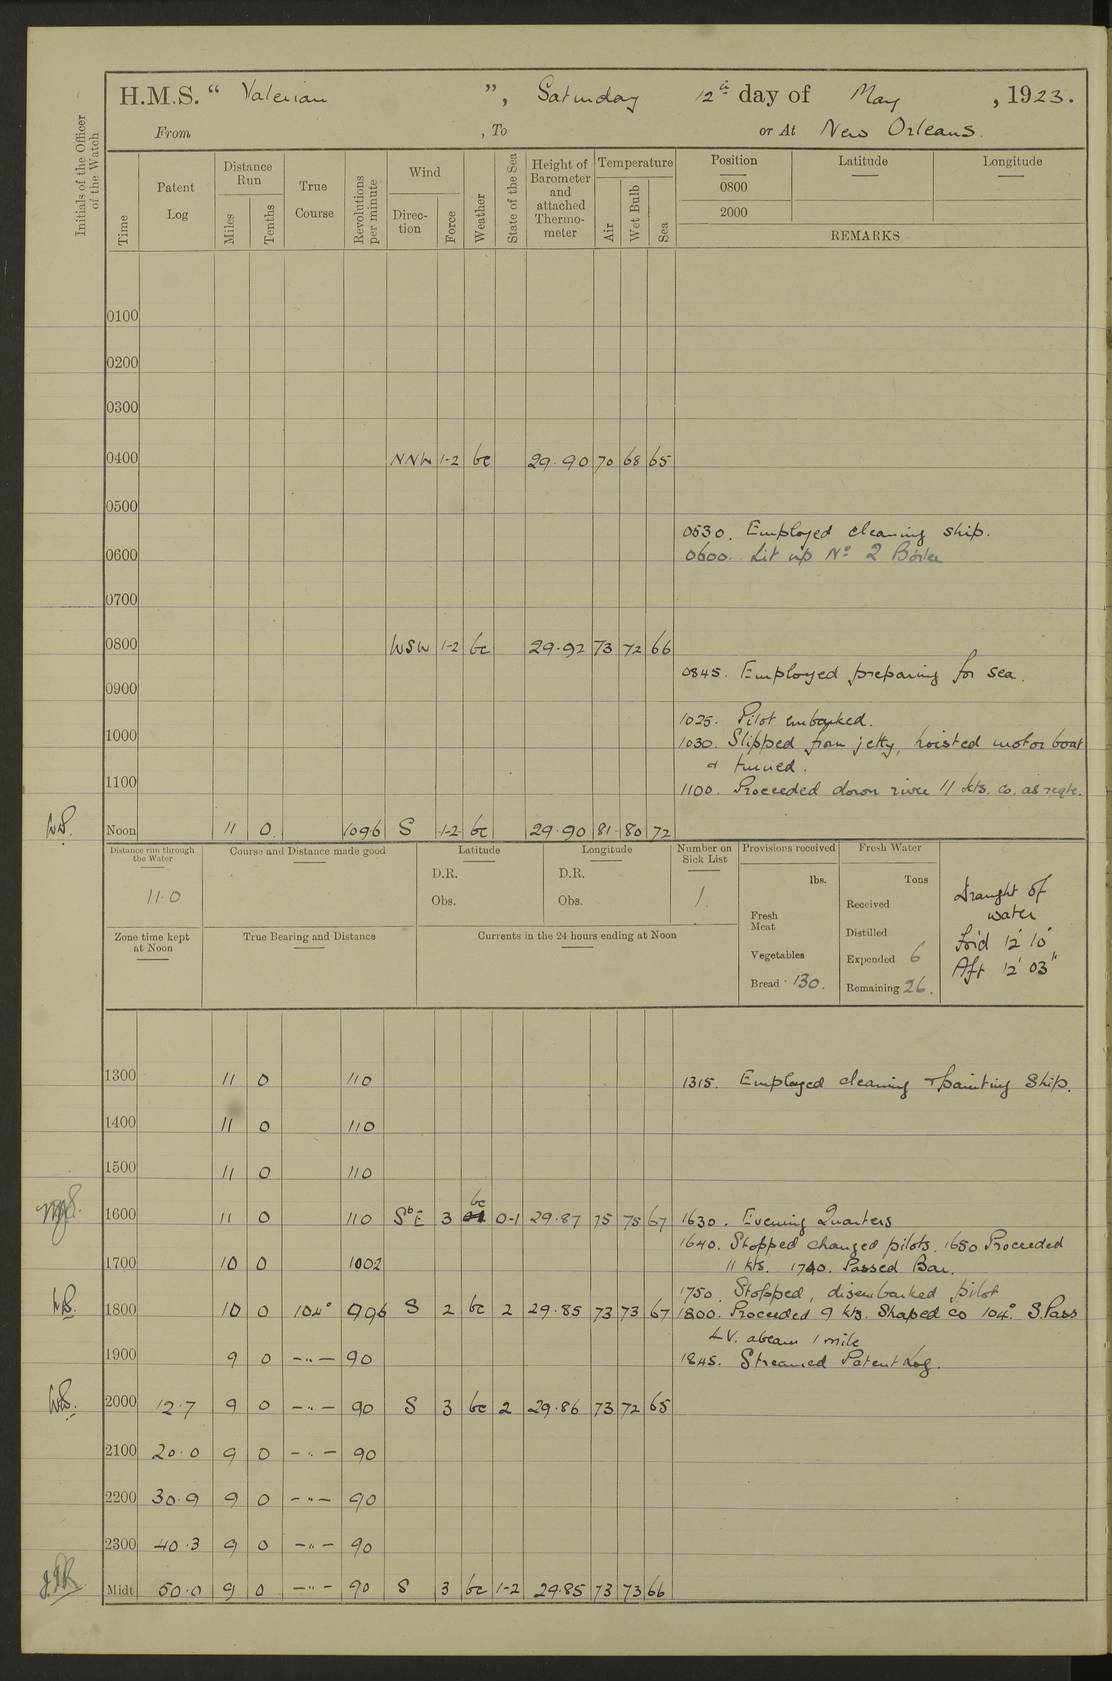 H.M.S. “ Valerian ”, Saturday 12th day of May , 1923.
From , To or At New Orleans.
Initials of the Officer of the Watch
Time Patent Log Distance Run Miles Tenths True Course Revolutions per minute Wind Direc-tion Force Weather State of the Sea Height of Barometer and attached Thermo-meter Temperature Air Wet Bulb Sea Position Latitude Longitude
0800
2000
REMARKS
0100
0200
0300
0400 NNW 1-2 bc 29.90 70 68 65
0500
0530. Employed cleaning ship.
0600 0600. Lit up No 2 Boiler
0700
0800 WSW 1-2 bc 29.92 73 72 66
0845. Employed preparing for sea.
0900
1025. Pilot embarked.
1000 1030. Slipped from jetty, hoisted motor boat
& turned.
1100 1100. Proceeded down river 11 kts. co. as reqte.
Noon 11 0 1096 S 1-2 bc 29.90 81 80 72
Distance run through the Water Course and Distance made good Latitude Longitude Number on Sick List Provisions received Fresh Water
11.0 D.R. D.R. 1 lbs. Tons Draught of water
Obs. Obs. Fresh Meat Received For'd 12' 10"
Zone time kept at Noon True Bearing and Distance Currents in the 24 hours ending at Noon Distilled Aft 12' 03"
Vegetables Expended 6
Bread 130. Remaining 26.
1300 11 0 110 1315. Employed cleaning & painting Ship.
1400 11 0 110
1500 11 0 110
bc
1600 11 0 110 SbE 3 0-1 29.87 75 75 67 1630. Evening Quarters
1640. Stopped changed pilots. 1650 Proceeded
1700 10 0 1002 11 kts. 1740. Passed Bar.
1750. Stopped, disembarked pilot
1800 10 0 104° 996 S 2 bc 2 29.85 73 73 67 1800. Proceeded 9 kts. Shaped co 104° S. Pass
L.V. abeam 1 mile
1900 9 0 -"- 90 1845. Streamed Patent Log.
2000 12.7 9 0 -"- 90 S 3 bc 2 29.86 73 72 65
2100 20.0 9 0 -"- 90
2200 30.9 9 0 -"- 90
2300 40.3 9 0 -"- 90
Midt 50.0 9 0 -"- 90 S 3 bc 1-2 29.85 73 73 66